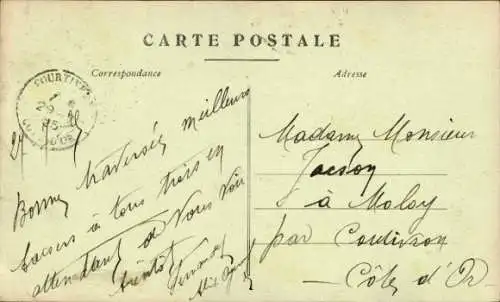 CARTE POSTALE
Correspondance
Adresse
COURTIVRON
CÔTE D'OR
27
Bonne traversée meilleurs
baisers à tous trois en
attendant de vous voir
bientôt
Madame Monsieur
à Moloy
par Coutivron
Côte d'Or